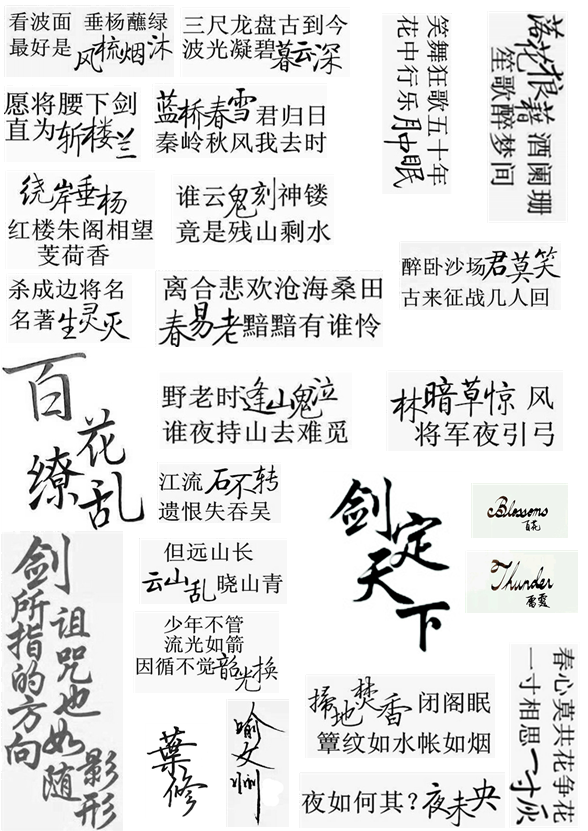 看波面 垂杨蘸绿
最好是 风梳烟沐
三尺龙盘古到今
波光凝碧暮云深
笑舞狂歌五十年
花中行乐月中眠
落花狼藉酒阑珊
笙歌醉梦间
愿将腰下剑
直为斩楼兰
蓝桥春雪君归日
秦岭秋风我去时
绕岸垂杨
红楼朱阁相望
芰荷香
谁云鬼刻神镂
竟是残山剩水
醉卧沙场君莫笑
古来征战几人回
杀成边将名
名著生灵灭
离合悲欢沧海桑田
春易老黯黯有谁怜
百花
缭乱
野老时逢山鬼泣
谁夜持山去难觅
林暗草惊风
将军夜引弓
江流石不转
遗恨失吞吴
剑定
天下
Blossoms
百花
Thunder
雷霆
剑所指的方向
诅咒也如
影形随
但远山长
云山乱晓山青
少年不管
流光如箭
因循不觉韶光换
葉修
喻文州
扫地焚香闭阁眠
簟纹如水帐如烟
夜如何其？夜未央
春心莫共花争花
一寸相思一寸灰